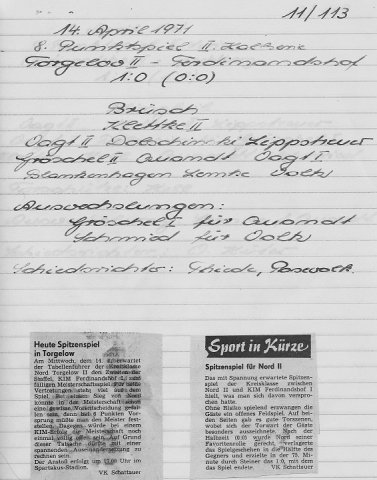 11/113
14. April 1971
8. Punktspiel II. Halbserie
Torgelow II – Ferdinandshof
1:0 (0:0)
Brüsch
Klettke II
Vogt II Dolschinski Lippstreuer
Gröschel II Quandt Vogt I
Blankenhagen Lemke Voltz
Auswechslungen:
Gröschel I für Quandt
Schmied für Voltz
Schiedsrichter: Thiede, Pasewalk
Heute Spitzenspiel
in Torgelow
Am Mittwoch, dem 14. 4. erwartet
der Tabellenführer der Kreisklasse
Nord Torgelow II den Zweiten der
Staffel, KIM Ferdinandshof I, zum
fälligen Meisterschaftsspiel. Für beide
Vertretungen steht viel auf dem
Spiel. Bei einem Sieg von Nord
könnte in der Meisterschaft
eine gewisse Vorentscheidung gefal-
len sein, denn bei 6 Punkten Vor-
sprung müßte man den Meister fest-
stellen. Dagegen würde bei einem
KIM-Erfolg die Meisterschaft noch
einmal völlig offen sein. Auf Grund
dieser Tatsache dürfte mit einer
spannenden Auseinandersetzung zu
rechnen sein.
Der Anstoß erfolgt um 17.00 Uhr im
Spartakus-Stadion.
VK Schattauer
Sport in Kürze
Spitzenspiel für Nord II
Das mit Spannung erwartete Spitzen-
spiel der Kreisklasse zwischen
Nord II und KIM Ferdinandshof I
hielt, was man sich davon ver-
sprochen hatte.
Ohne Risiko spielend erzwangen die
Gäste ein offenes Feldspiel. Auf bei-
den Seiten gab es gute Torchancen,
wobei sich der Torwart der Gäste
besonders auszeichnete. Nach der
Halbzeit (0:0) wurde Nord seiner
Favoritenrolle gerecht, verlagerte
das Spielgeschehen in die Hälfte des
Gegners und erzielte in der 75. Mi-
nute durch Steiner das 1:0, mit dem
das Spiel endete. VK Schattauer